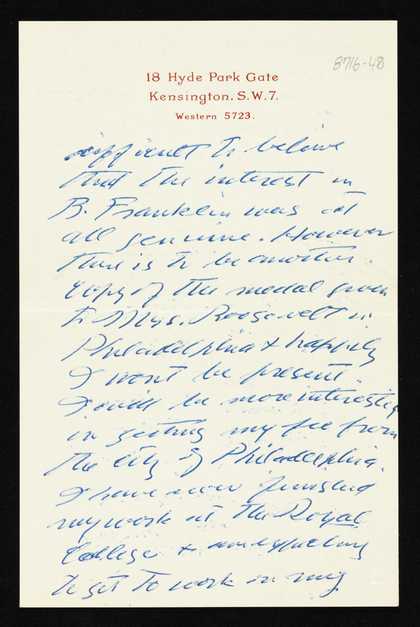 8716-48
18 Hyde Park Gate
Kensington. S.W.7.
Western 5723.
difficult to believe
that the interest in
B. Franklin was at
all genuine. However
there is to be another
copy of the medal given
to Mrs. Roosevelt in
Philadelphia & happily
I wont be present.
I will be more interested
in getting my fee from
the city of Philadelphia.
I have now finished
my work at the Royal
College &
to get to work in my